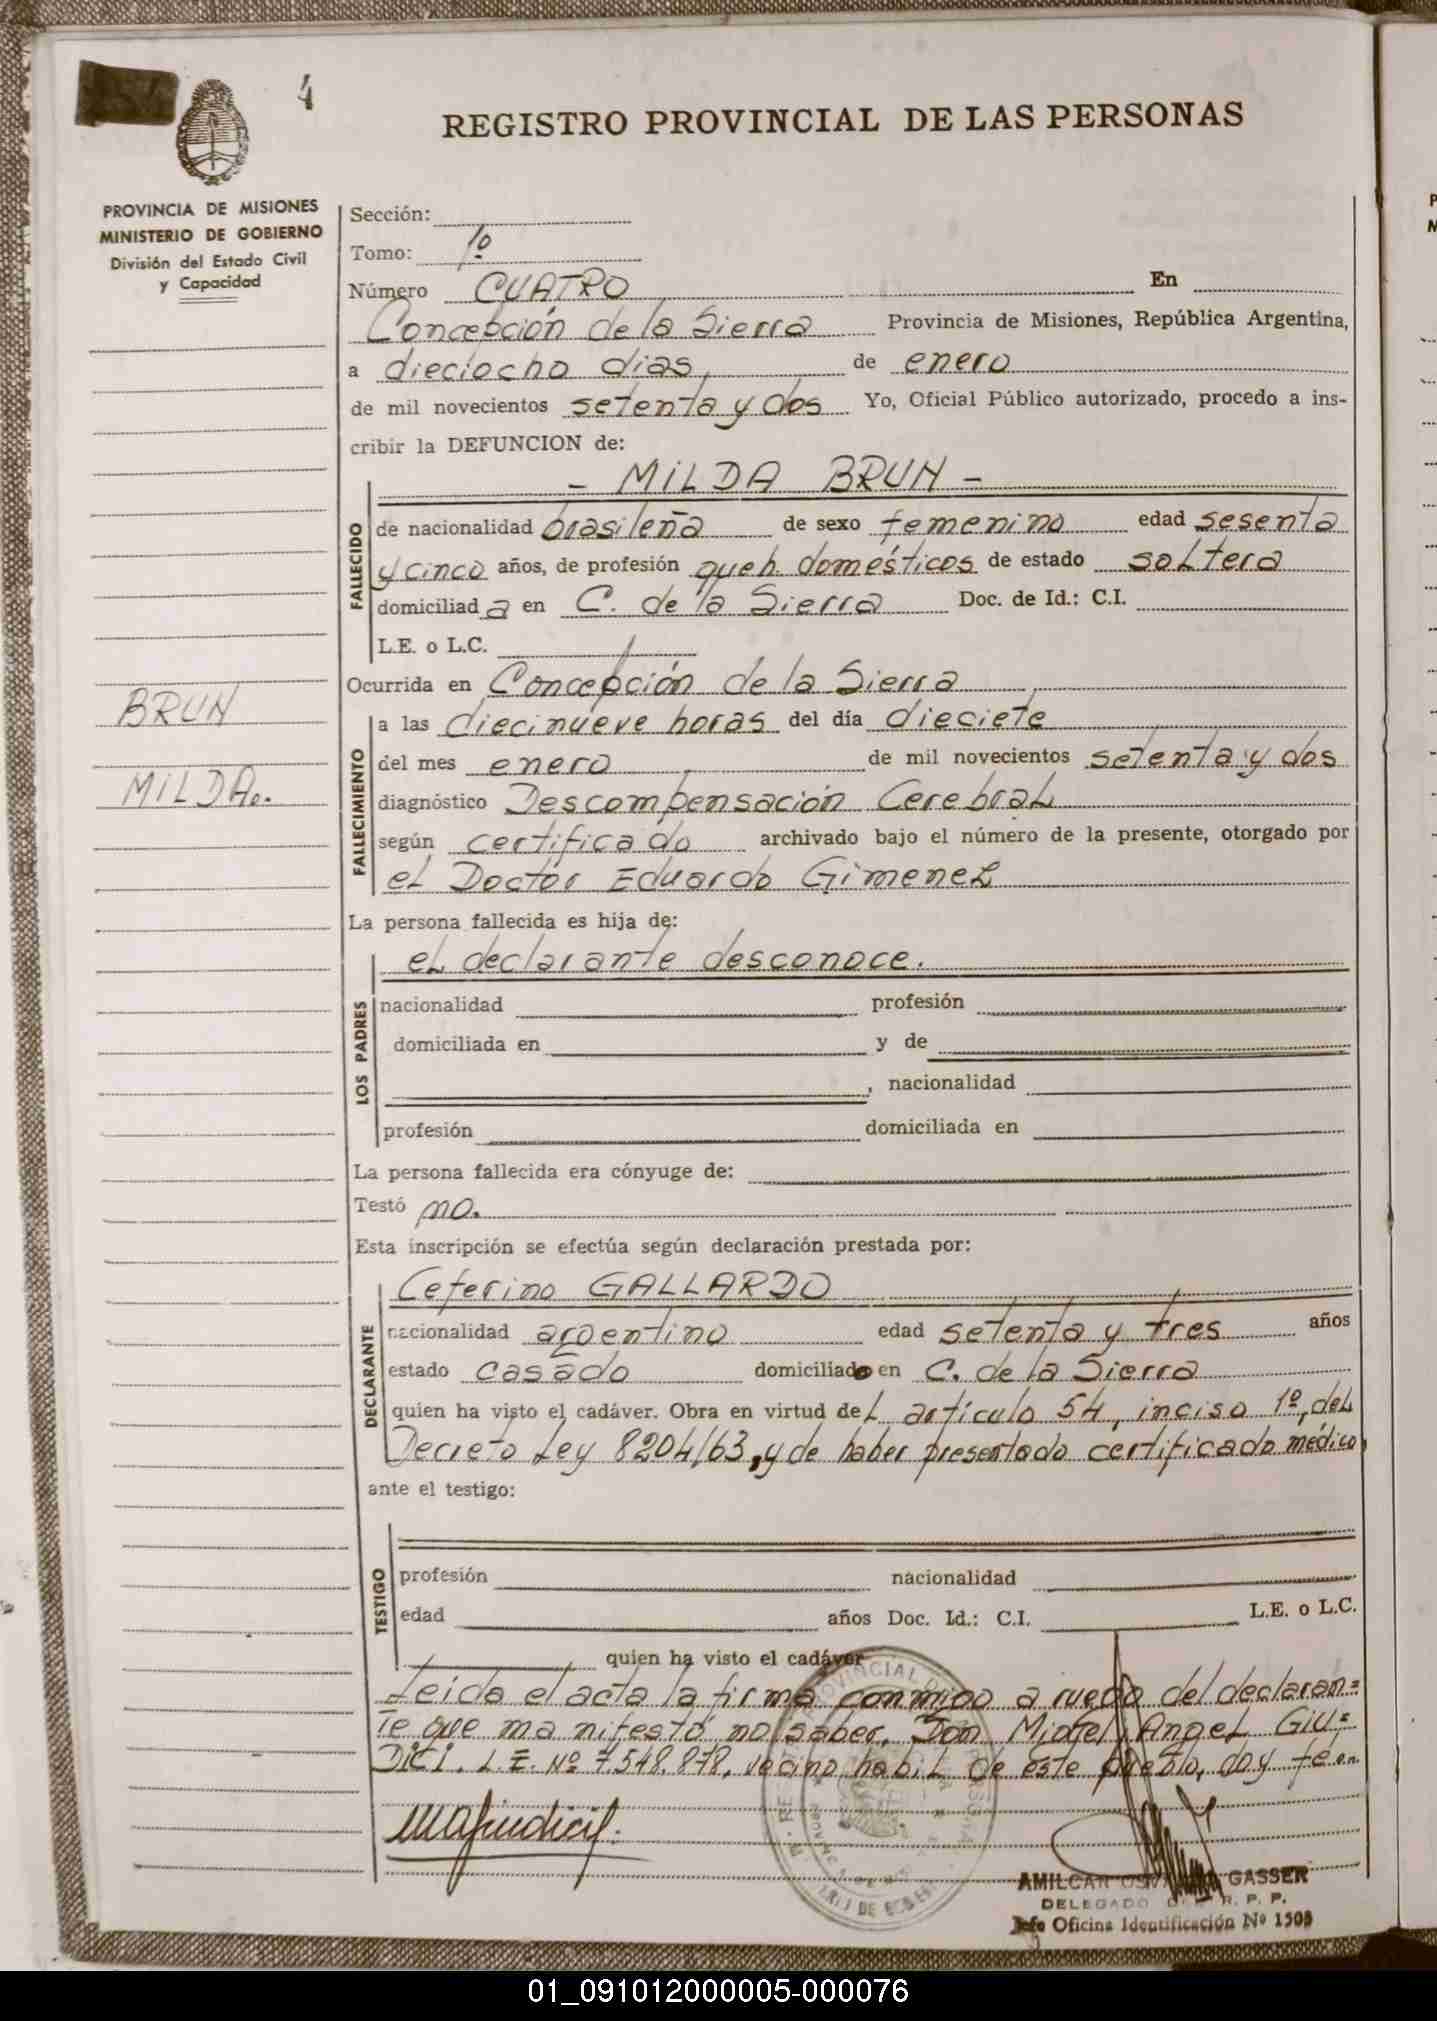 4
REGISTRO PROVINCIAL DE LAS PERSONAS
PROVINCIA DE MISIONES
MINISTERIO DE GOBIERNO
División del Estado Civil
y Capacidad
Sección:
Tomo: 1º
Número CUATRO En
Concepción de la Sierra Provincia de Misiones, República Argentina,
a dieciocho dias, de enero
de mil novecientos setenta y dos Yo, Oficial Público autorizado, procedo a ins-
cribir la DEFUNCION de:
- MILDA BRUN -
FALLECIDO
de nacionalidad brasileña de sexo femenino edad sesenta
y cinco años, de profesión queh. domésticos de estado soltera
domiciliada en C. de la Sierra Doc. de Id.: C.I.
L.E. o L.C.
Ocurrida en Concepción de la Sierra
BRUN
MILDA.
FALLECIMIENTO
a las diecinueve horas del día dieciete
del mes enero, de mil novecientos setenta y dos
diagnóstico Descompensación Cerebral
según certificado archivado bajo el número de la presente, otorgado por
el Doctor Eduardo Gimenez
La persona fallecida es hija de:
el declarante desconoce.
LOS PADRES
nacionalidad profesión
domiciliada en y de
, nacionalidad
profesión domiciliada en
La persona fallecida era cónyuge de:
Testó no.
Esta inscripción se efectúa según declaración prestada por:
Ceferino GALLARDO
DECLARANTE
nacionalidad argentino edad setenta y tres años
estado casado domiciliado en C. de la Sierra
quien ha visto el cadáver. Obra en virtud del artículo 54, inciso 1º, del
Decreto Ley 8204/63, y de haber presentado certificado médico,
ante el testigo:
TESTIGO
profesión nacionalidad
edad años Doc. Id.: C.I. L.E. o L.C.
quien ha visto el cadáver
Leída el acta la firma conmigo a ruego del declaran=
te que manifestó no saber, Don Miguel Angel Giu=
dici. L.E. Nº 7.548.878, vecino habil de este pueblo, doy fé.
AMILCAR GASSER
DELEGADO R. P. P.
Jefe Oficina Identificación Nº 1508
01_091012000005-000076